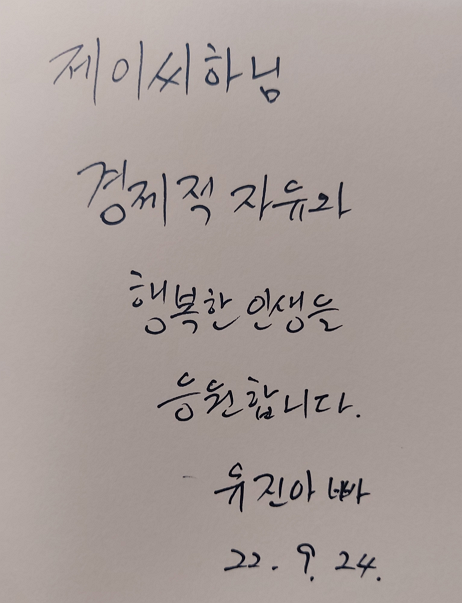 제이씨하님
경제적 자유와
행복한 인생을
응원합니다.
유진아빠
22. 9. 24.